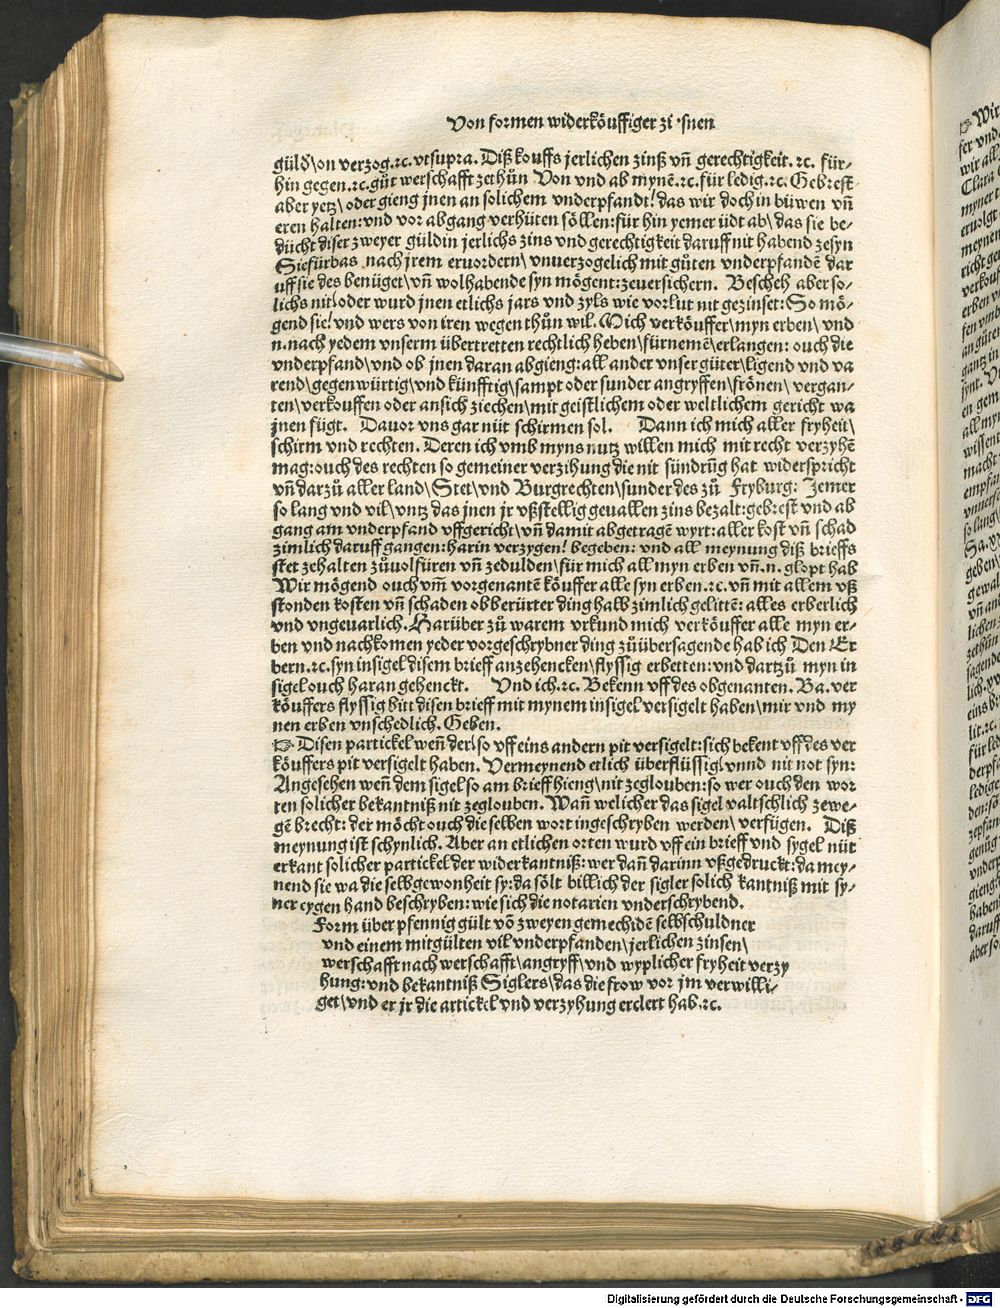 Von formen widerköuffiger zi snen
güld\on verzog.⁊c. vtsupra. Diß kouffs jerlichen zinß vn̄ gerechtigkeit. ⁊c. für-
hin gegen.⁊c.gůt werschafft zethůn Von vnd ab mynē.⁊c.für ledig.⁊c. Gebrest
aber yetz\ oder gieng jnen an solichem vnderpfandt! das wir doch in büwen vn̄
eren halten:vnd vor abgang verhüten söllen:für hin yemer üdt ab\ das sie be-
dücht diser zweyer güldin jerlichs zins vnd gerechtigkeit daruff nit habend zesyn
Sie fürbas nach jrem ervordern\ vnuerzogelich mit gůten vnderpfandē dar
uff sie des benüget\ vn̄ wolhabende syn mögent:zeuersichern. Bescheh aber so-
lichs nit\oder wurd jnen etlichs jars vnd zyls wie vorlut nit gezinset:So mö-
gend sie!vnd wers von iren wegen thůn wil. Mich verköuffer\myn erben\ vnd
n.nach yedem vnserm übertretten rechtlich heben\fürnemē\erlangen: ouch die
vnderpfand\vnd ob jnen daran abgieng:all ander vnser güter\ligend vnd va
rend\gegenwürtig\vnd künfftig\sampt oder sunder angryffen\frönen\ vergan-
ten\verkouffen oder an sich ziechen\mit geistlichem oder weltlichem gericht wa
jnen fügt. Dauor vns gar nüt schirmen sol. Dann ich mich aller fryheit\
schirm vnd rechten. Deren ich vmb myns nutz willen mich mit recht verzyhē
mag:ouch des rechten so gemeiner verzihung die nit sündrūg hat widerspricht
vn̄ darzů aller land\Stet\vnd Burgrechten\sunder des zů Fryburg: Jemer
so lang vnd vil\vntz das jnen jr vßstellig geuallen zins bezalt:gebrest vnd ab
gang am vnderpfand vffgericht\vn̄ damit abgetragē wyrt:aller kost vn̄ schad
zimlich daruff gangen:harin verzygen! begeben: vnd all meynung diß brieffs
stet zehalten zůuolfüren vn̄ zedulden\für mich all myn erben vn̄.n. glopt hab
Wir mögend ouch vm̄ vorgenantē köuffer alle syn erben.⁊c.vn̄ mit allem vß
stonden kosten vn̄ schaden obberürter ding halb zimlich gelittē: alles erberlich
vnd vngeuarlich. Harüber zů warem vrkund mich verköuffer alle myn er-
ben vnd nachkomen yeder vorgeschrybner ding zůübersagende hab ich Den Er
bern.⁊c.syn insigel disem brieff anzehencken\flyssig erbetten:vnd dartzů myn in
sigel ouch haran gehenckt. Vnd ich.⁊c. Bekenn vff des obgenanten. Ba. ver
köuffers flyssig bitt disen brieff mit mynem insigel versigelt haben\mir vnd my
nen erben vnschedlich. Geben.
☞ Disen partickel wen̄ der\so vff eins andern pit versigelt:sich bekent vff des ver
köuffers pit versigelt haben. Vermeynend etlich überflüssig\vnnd nit not syn:
Angesehen wen̄ dem sigel so am brieff hieng\nit zeglouben:so wer ouch den wor
ten solicher bekantniß nit zeglouben. Wan̄ welicher das sigel valtschlich zewe-
gē brecht: der möcht ouch die selben wort ingeschryben werden\ verfügen. Diß
meynung ist schynlich. Aber an etlichen orten wurd vff ein brieff vnd sygel nüt
erkant solicher partickel der widerkantniß:wer dan̄ darinn vßgedruckt:da mey-
nend sie wa die selb gewonheit sy:da sölt billich der sigler solich kantniß mit sy-
ner eygen hand beschryben:wie sich die notarien vnderschrybend.
Form über pfennig gült vō zweyen gemechidē selbschuldner
vnd einem mitgülten vil vnderpfanden\jerlichen zinsen\
werschafft nach werschafft\angryff\vnd wyplicher fryheit verzy
hung:vnd bekantniß Siglers\das die frow vor jm verwilli-
get\vnd er jr die artickel vnd verzyhung erclert hab.⁊c.
Digitalisierung gefördert durch die Deutsche Forschungsgemeinschaft - DFG